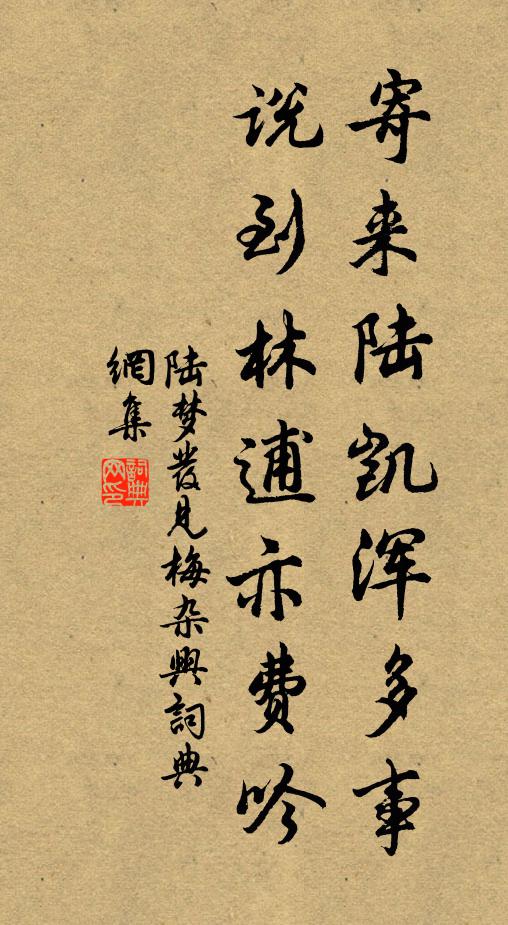 寄来陆凯浑多事
说到林逋亦费吟
陆梦发见梅杂兴詞典
網集
詞典
网印